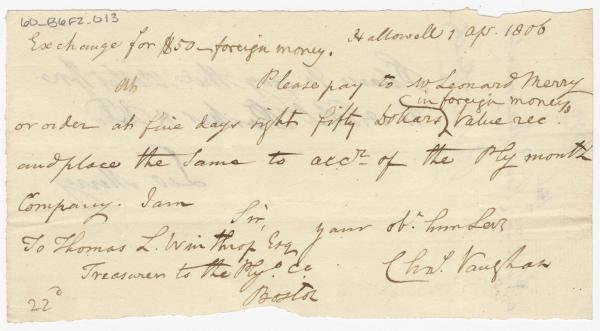 60_B6F2_013
Exchange for $50 - foreign money. Hallowell 1 Apr. 1806
Please pay to Mr Leonard Merry
in foreign money
or order at five days sight fifty Dollars value recd.
and place the same to acct. of the Plymouth
Company. I am
Sir,
your obt. hum Serv
To Thomas L. Winthrop Esq
Chas. Vaughan
Treasurer to the Plyo. Co
Boston
22d